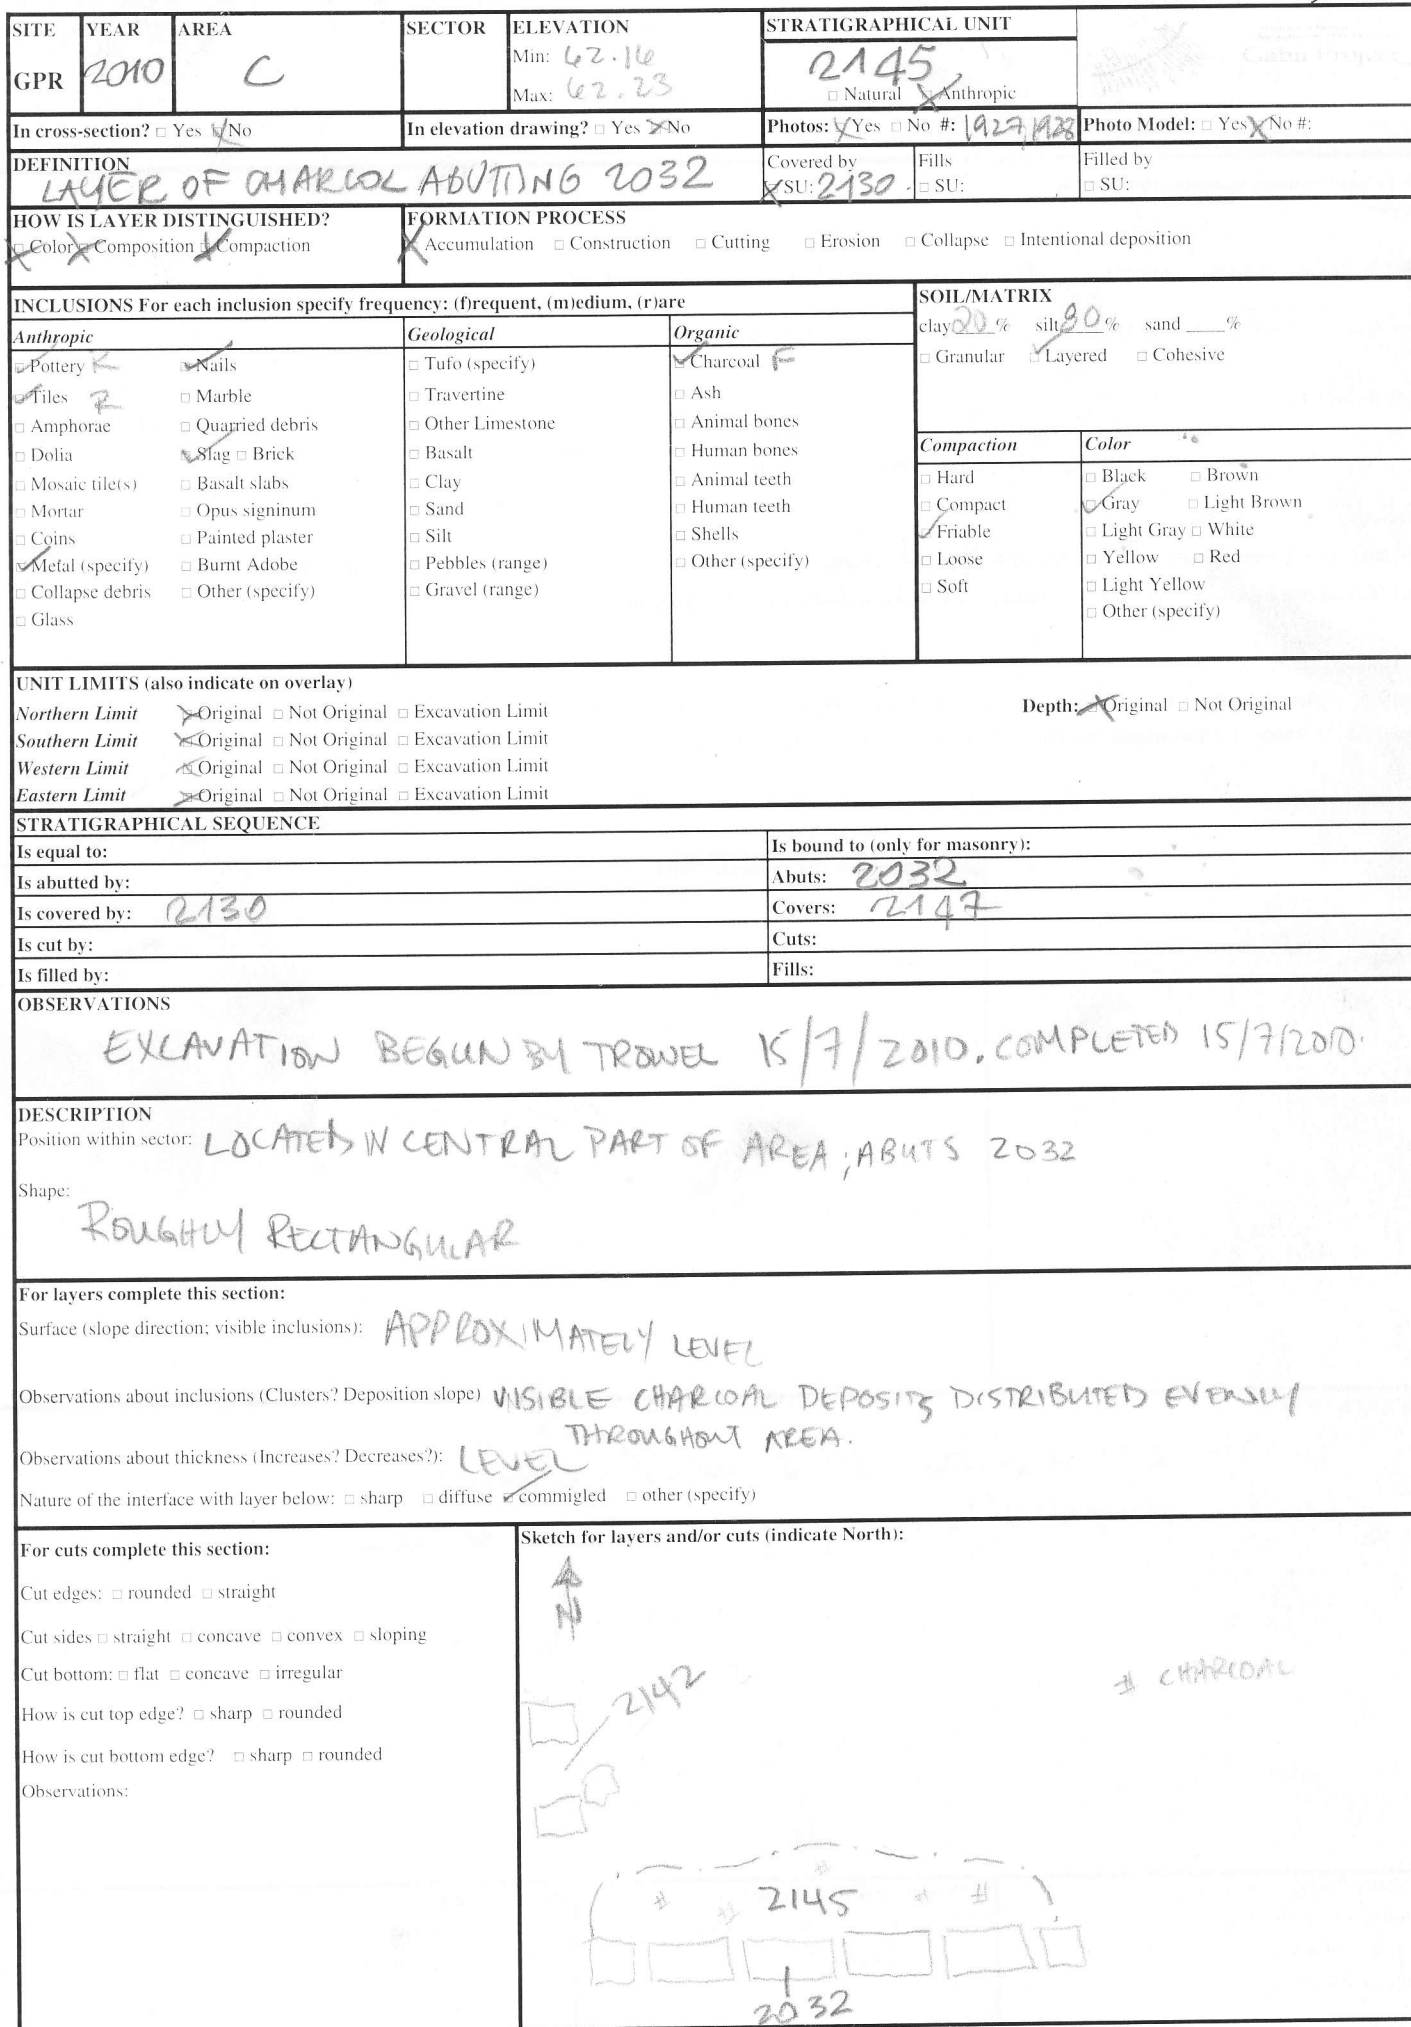 SITE YEAR AREA SECTOR ELEVATION STRATIGRAPHICAL UNIT
GPR 2010 C Min: 62.16 Max: 62.23 2145
□ Natural ☒ Anthropic
In cross-section? □ Yes ☒ No In elevation drawing? □ Yes ☒ No Photos: ☒ Yes □ No #: 1927, 1928 Photo Model: □ Yes ☒ No #:
DEFINITION
LAYER OF CHARCOL ABUTTING 2032
Covered by
☒ SU: 2130
Fills
□ SU:
Filled by
□ SU:
HOW IS LAYER DISTINGUISHED?
☒ Color ☒ Composition ☒ Compaction
FORMATION PROCESS
☒ Accumulation □ Construction □ Cutting □ Erosion □ Collapse □ Intentional deposition
INCLUSIONS For each inclusion specify frequency: (f)requent, (m)edium, (r)are
Anthropic
☑ Pottery R ☑ Nails
☑ Tiles R □ Marble
□ Amphorae □ Quarried debris
□ Dolia ☑ Slag □ Brick
□ Mosaic tile(s) □ Basalt slabs
□ Mortar □ Opus signinum
□ Coins □ Painted plaster
☑ Metal (specify) □ Burnt Adobe
□ Collapse debris □ Other (specify)
□ Glass
Geological
□ Tufo (specify)
□ Travertine
□ Other Limestone
□ Basalt
□ Clay
□ Sand
□ Silt
□ Pebbles (range)
□ Gravel (range)
Organic
☑ Charcoal F
□ Ash
□ Animal bones
□ Human bones
□ Animal teeth
□ Human teeth
□ Shells
□ Other (specify)
SOIL/MATRIX
clay 20 % silt 80 % sand ____%
□ Granular ☑ Layered □ Cohesive
Compaction
□ Hard
□ Compact
☑ Friable
□ Loose
□ Soft
Color
□ Black □ Brown
☑ Gray □ Light Brown
□ Light Gray □ White
□ Yellow □ Red
□ Light Yellow
□ Other (specify)
UNIT LIMITS (also indicate on overlay)
Northern Limit ☒ Original □ Not Original □ Excavation Limit Depth: ☒ Original □ Not Original
Southern Limit ☒ Original □ Not Original □ Excavation Limit
Western Limit ☒ Original □ Not Original □ Excavation Limit
Eastern Limit ☒ Original □ Not Original □ Excavation Limit
STRATIGRAPHICAL SEQUENCE
Is equal to: Is bound to (only for masonry):
Is abutted by: Abuts: 2032
Is covered by: 2130 Covers: 2147
Is cut by: Cuts:
Is filled by: Fills:
OBSERVATIONS
EXCAVATION BEGUN BY TROWEL 15/7/2010. COMPLETED 15/7/2010.
DESCRIPTION
Position within sector: LOCATED IN CENTRAL PART OF AREA; ABUTS 2032
Shape:
ROUGHLY RECTANGULAR
For layers complete this section:
Surface (slope direction; visible inclusions): APPROXIMATELY LEVEL
Observations about inclusions (Clusters? Deposition slope) VISIBLE CHARCOAL DEPOSITS DISTRIBUTED EVENLY
THROUGHOUT AREA.
Observations about thickness (Increases? Decreases?): LEVEL
Nature of the interface with layer below: □ sharp □ diffuse ☑ commigled □ other (specify)
For cuts complete this section:
Cut edges: □ rounded □ straight
Cut sides □ straight □ concave □ convex □ sloping
Cut bottom: □ flat □ concave □ irregular
How is cut top edge? □ sharp □ rounded
How is cut bottom edge? □ sharp □ rounded
Observations:
Sketch for layers and/or cuts (indicate North):
N
# CHARCOAL
2142
2145
2032